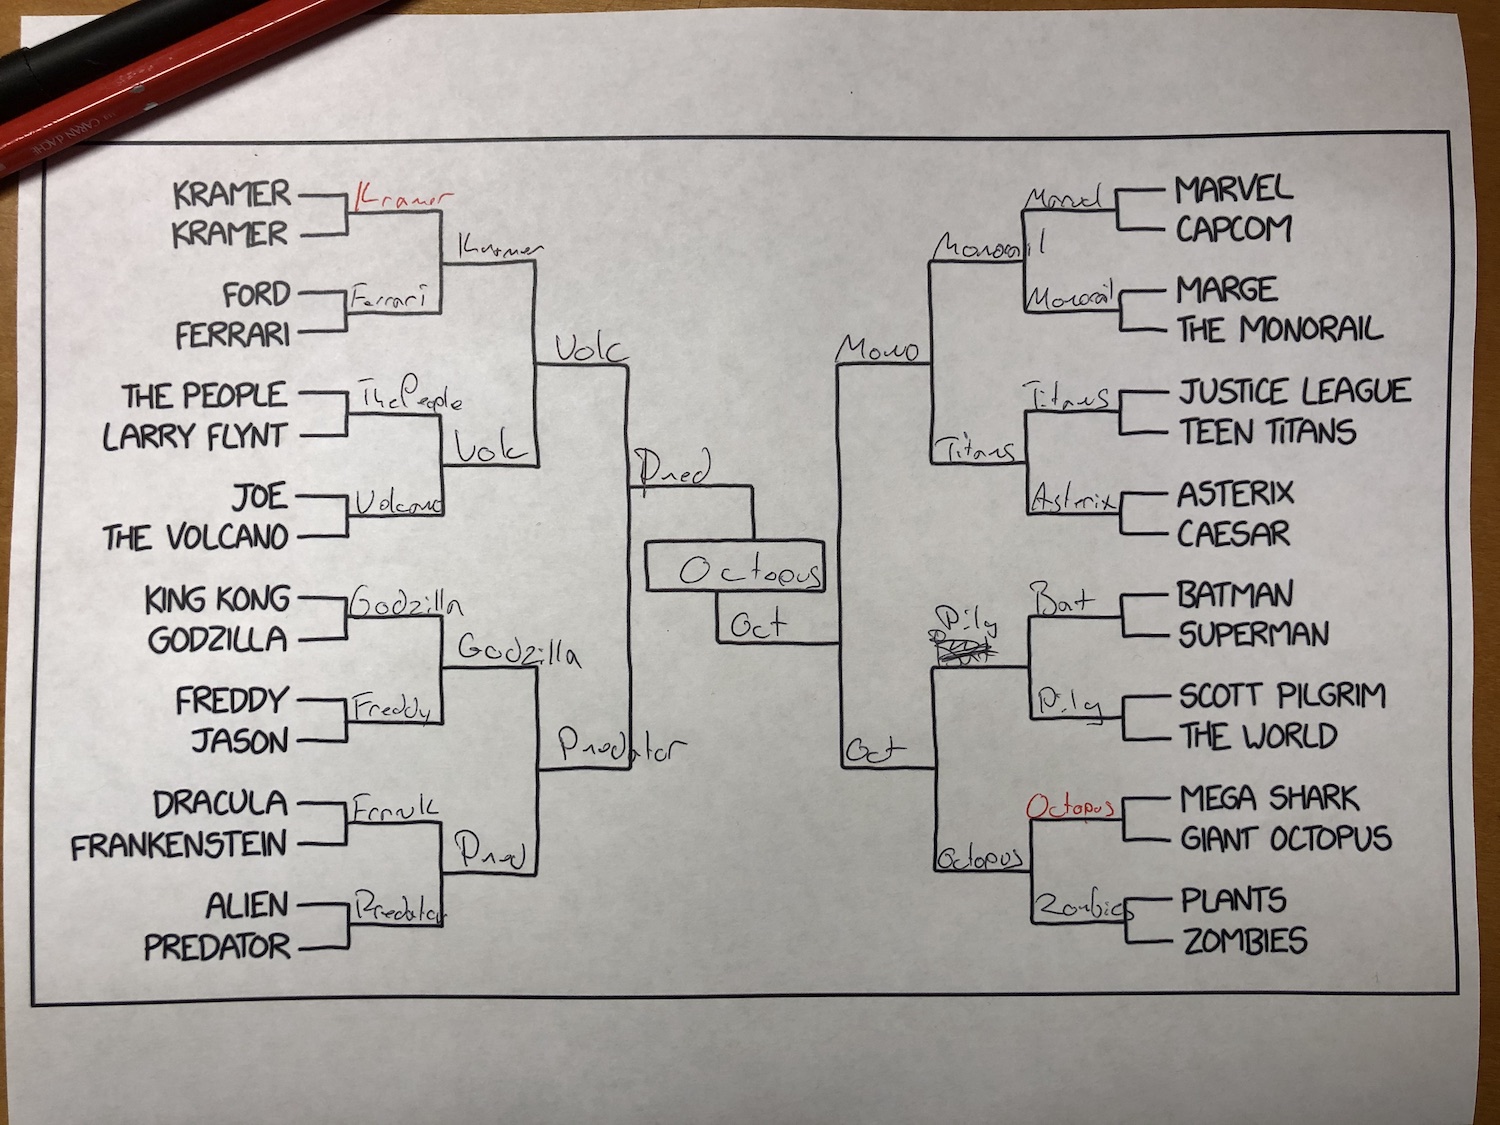 CARAN d'ACHE
KRAMER
KRAMER
FORD
FERRARI
THE PEOPLE
LARRY FLYNT
JOE
THE VOLCANO
KING KONG
GODZILLA
FREDDY
JASON
DRACULA
FRANKENSTEIN
ALIEN
PREDATOR
Kramer
Ferrari
The People
Volcano
Godzilla
Freddy
Frank
Predator
Kramer
Volc
Godzilla
Pred
Volc
Predator
Pred
Octopus
Oct
Mono
Oct
Monorail
Titans
Pilg
Octopus
Marvel
Monorail
Titans
Asterix
Bat
Pilg
Octopus
Zombies
MARVEL
CAPCOM
MARGE
THE MONORAIL
JUSTICE LEAGUE
TEEN TITANS
ASTERIX
CAESAR
BATMAN
SUPERMAN
SCOTT PILGRIM
THE WORLD
MEGA SHARK
GIANT OCTOPUS
PLANTS
ZOMBIES